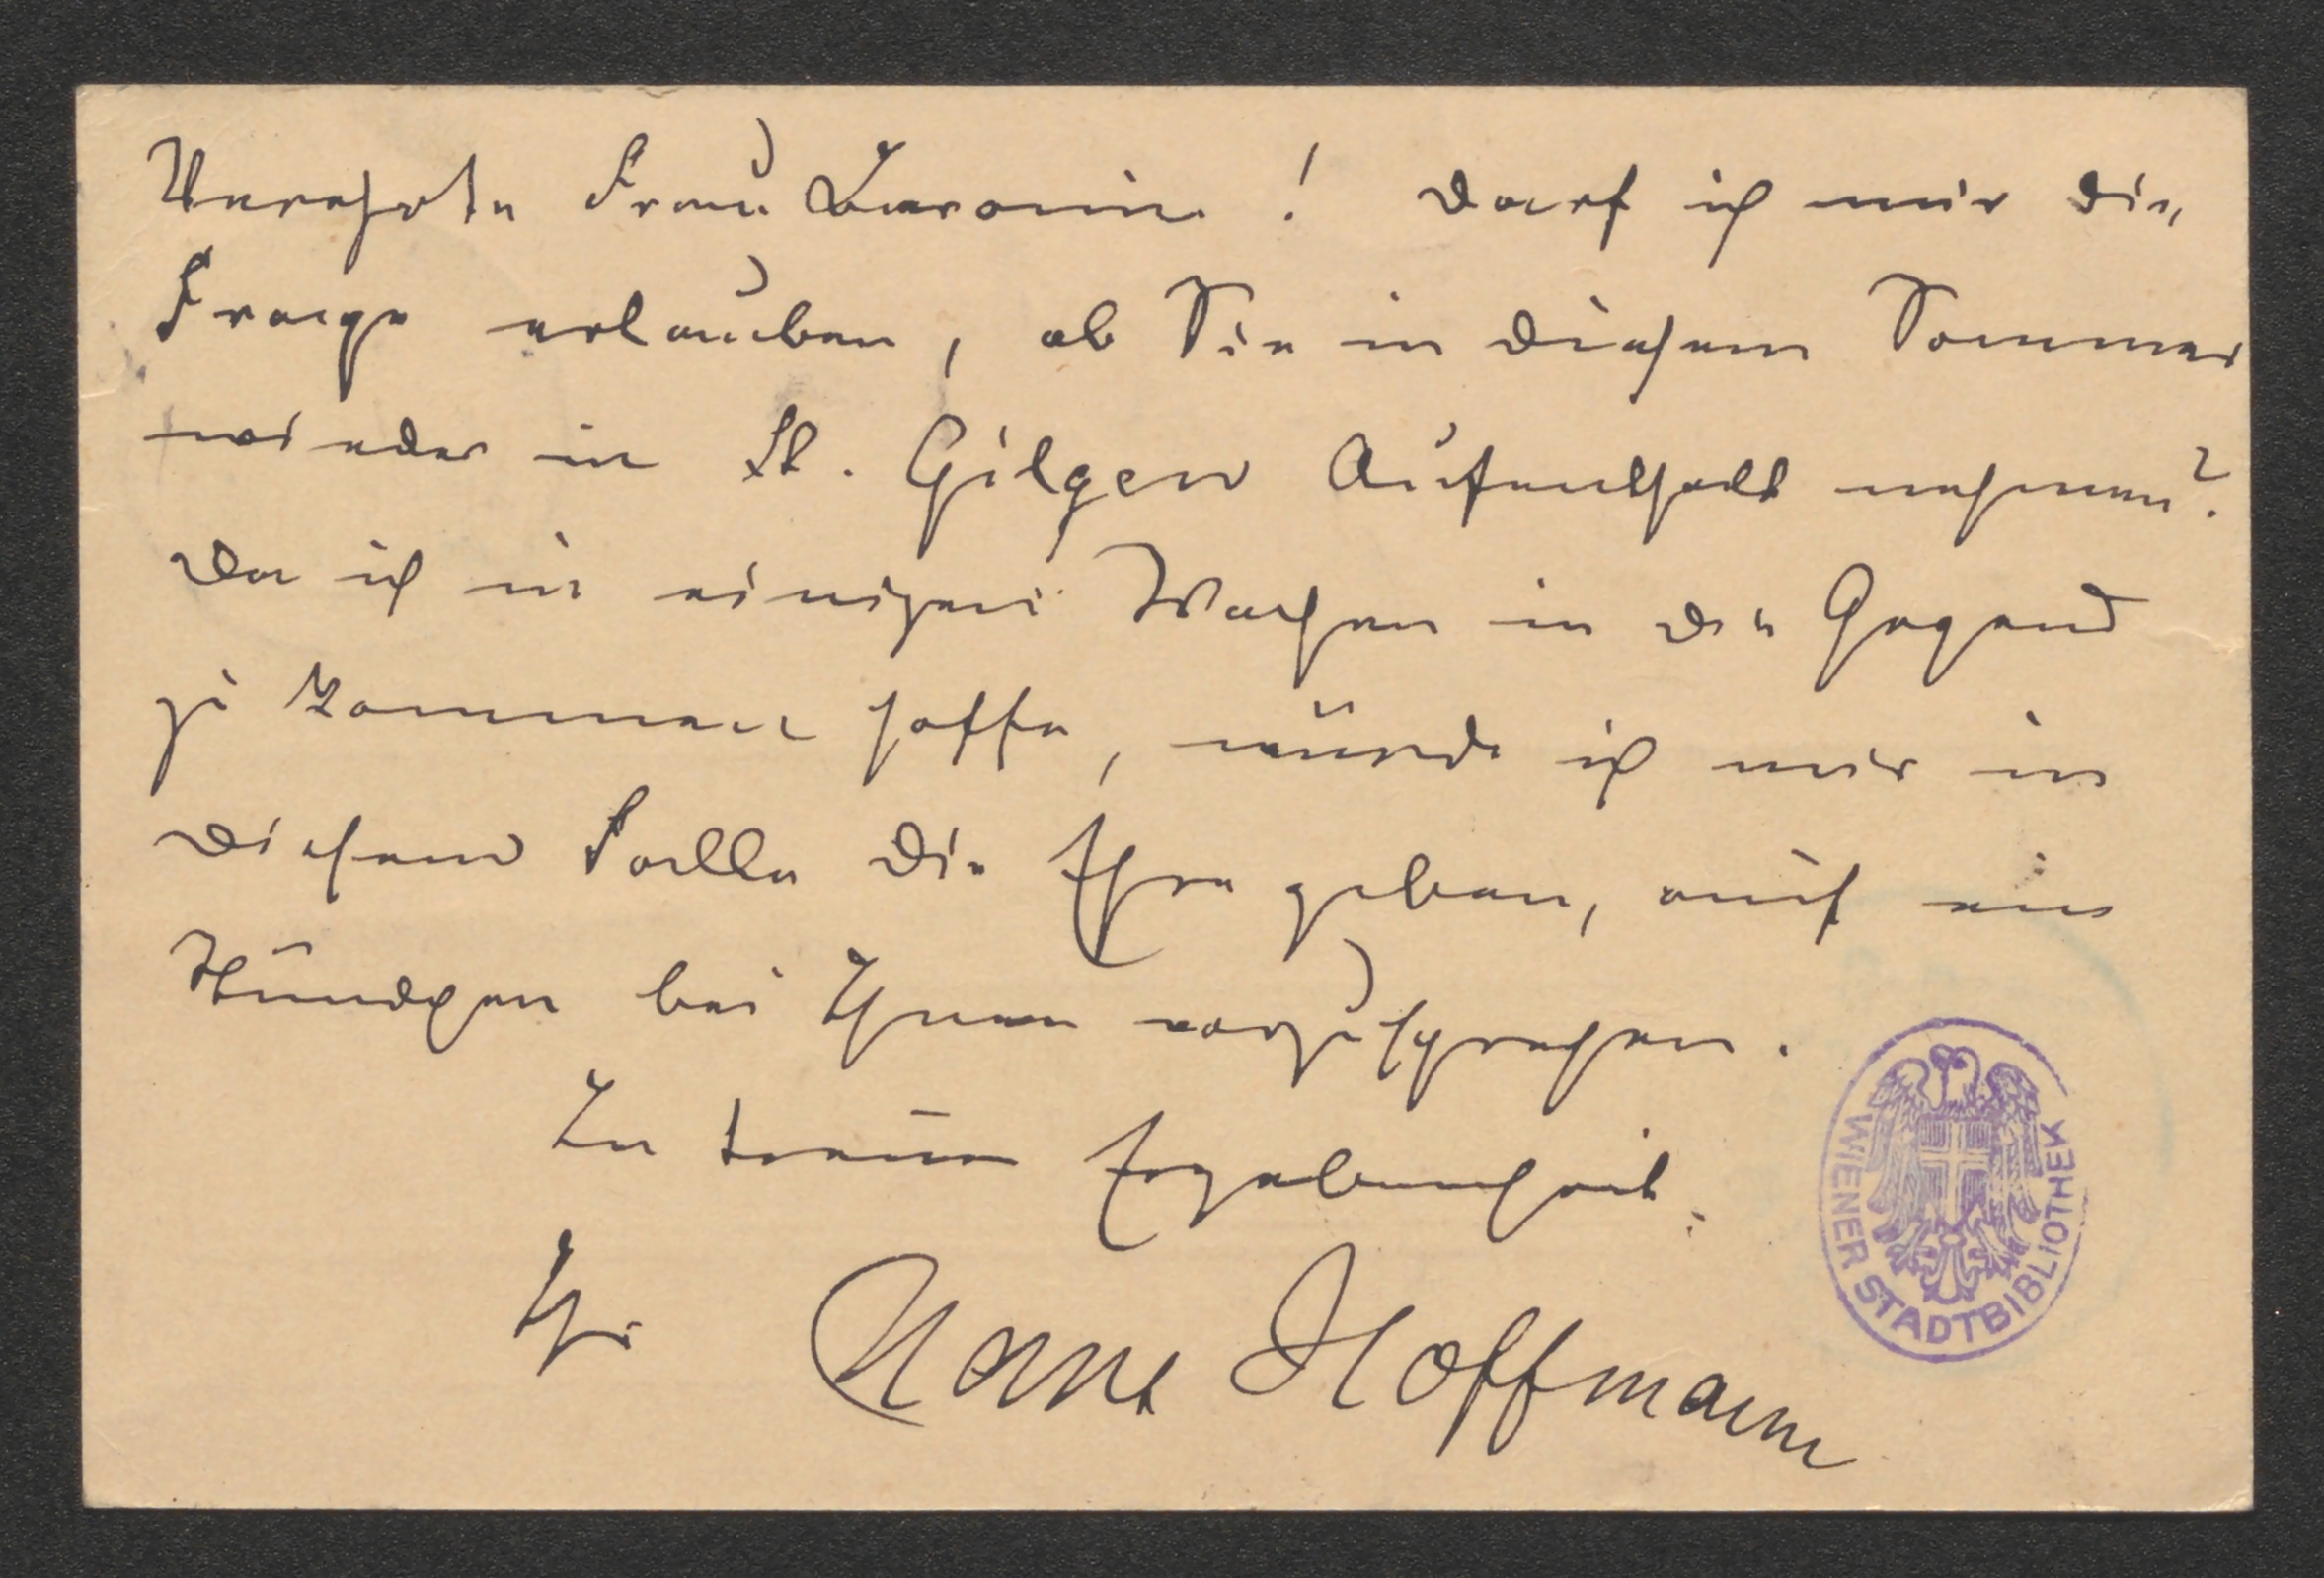 Verehrte Frau Baronin! Darf ich mir die
Frage erlauben, ob Sie in diesem Sommer
wieder in St. Gilgen Aufenthalt nehmen?
Da ich in einigen Wochen in die Gegend
zu kommen hoffe, würde ich mir in
diesem Falle die Ehre geben, auf ein
Stündchen bei Ihnen vorzusprechen.
In treuer Ergebenheit
Ihr Hans Hoffmann
WIENER STADTBIBLIOTHEK